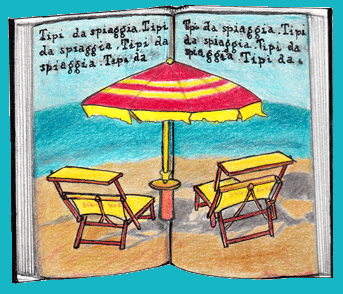 Tipi da spiaggia. Tipi
da spiaggia. Tipi da
spiaggia. Tipi da
Tipi da spiaggia. Tipi
da spiaggia. Tipi da
spiaggia. Tipi da